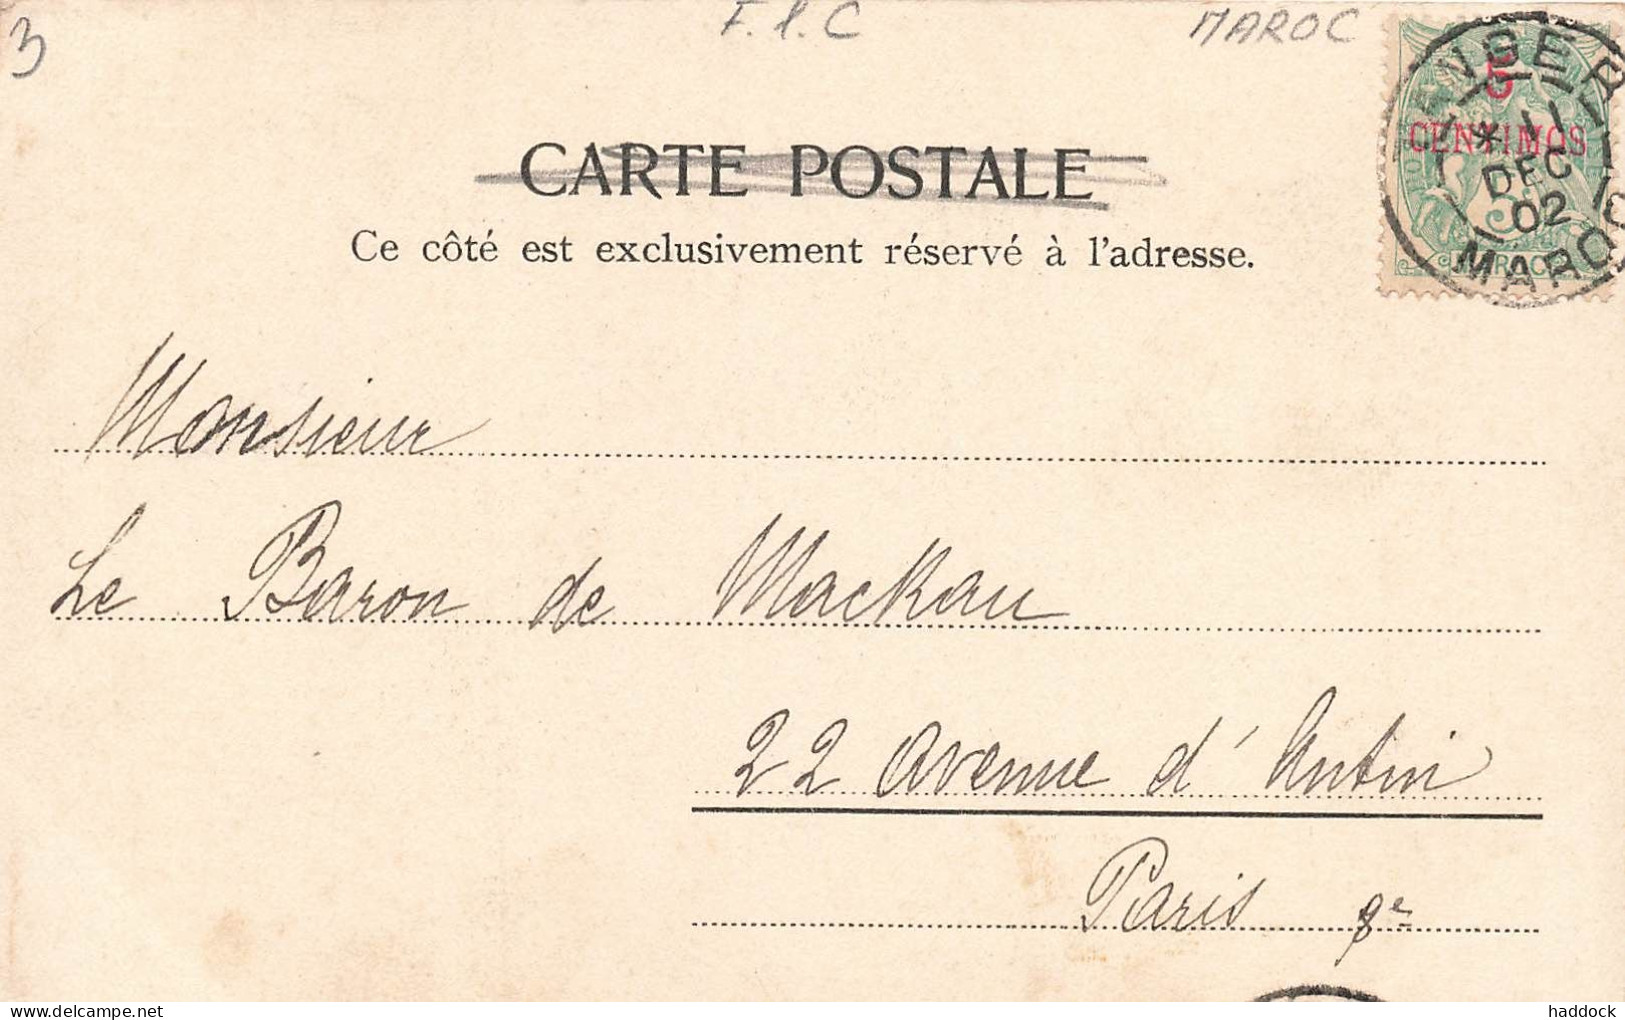 3
F.l.C
MAROC
TANGER
5
CENTIMOS
* 11
DEC
02
MAROC
CARTE POSTALE
Ce côté est exclusivement réservé à l'adresse.
Monsieur
Le Baron de Mackau
22 avenue d'Antin
Paris 8e
haddock